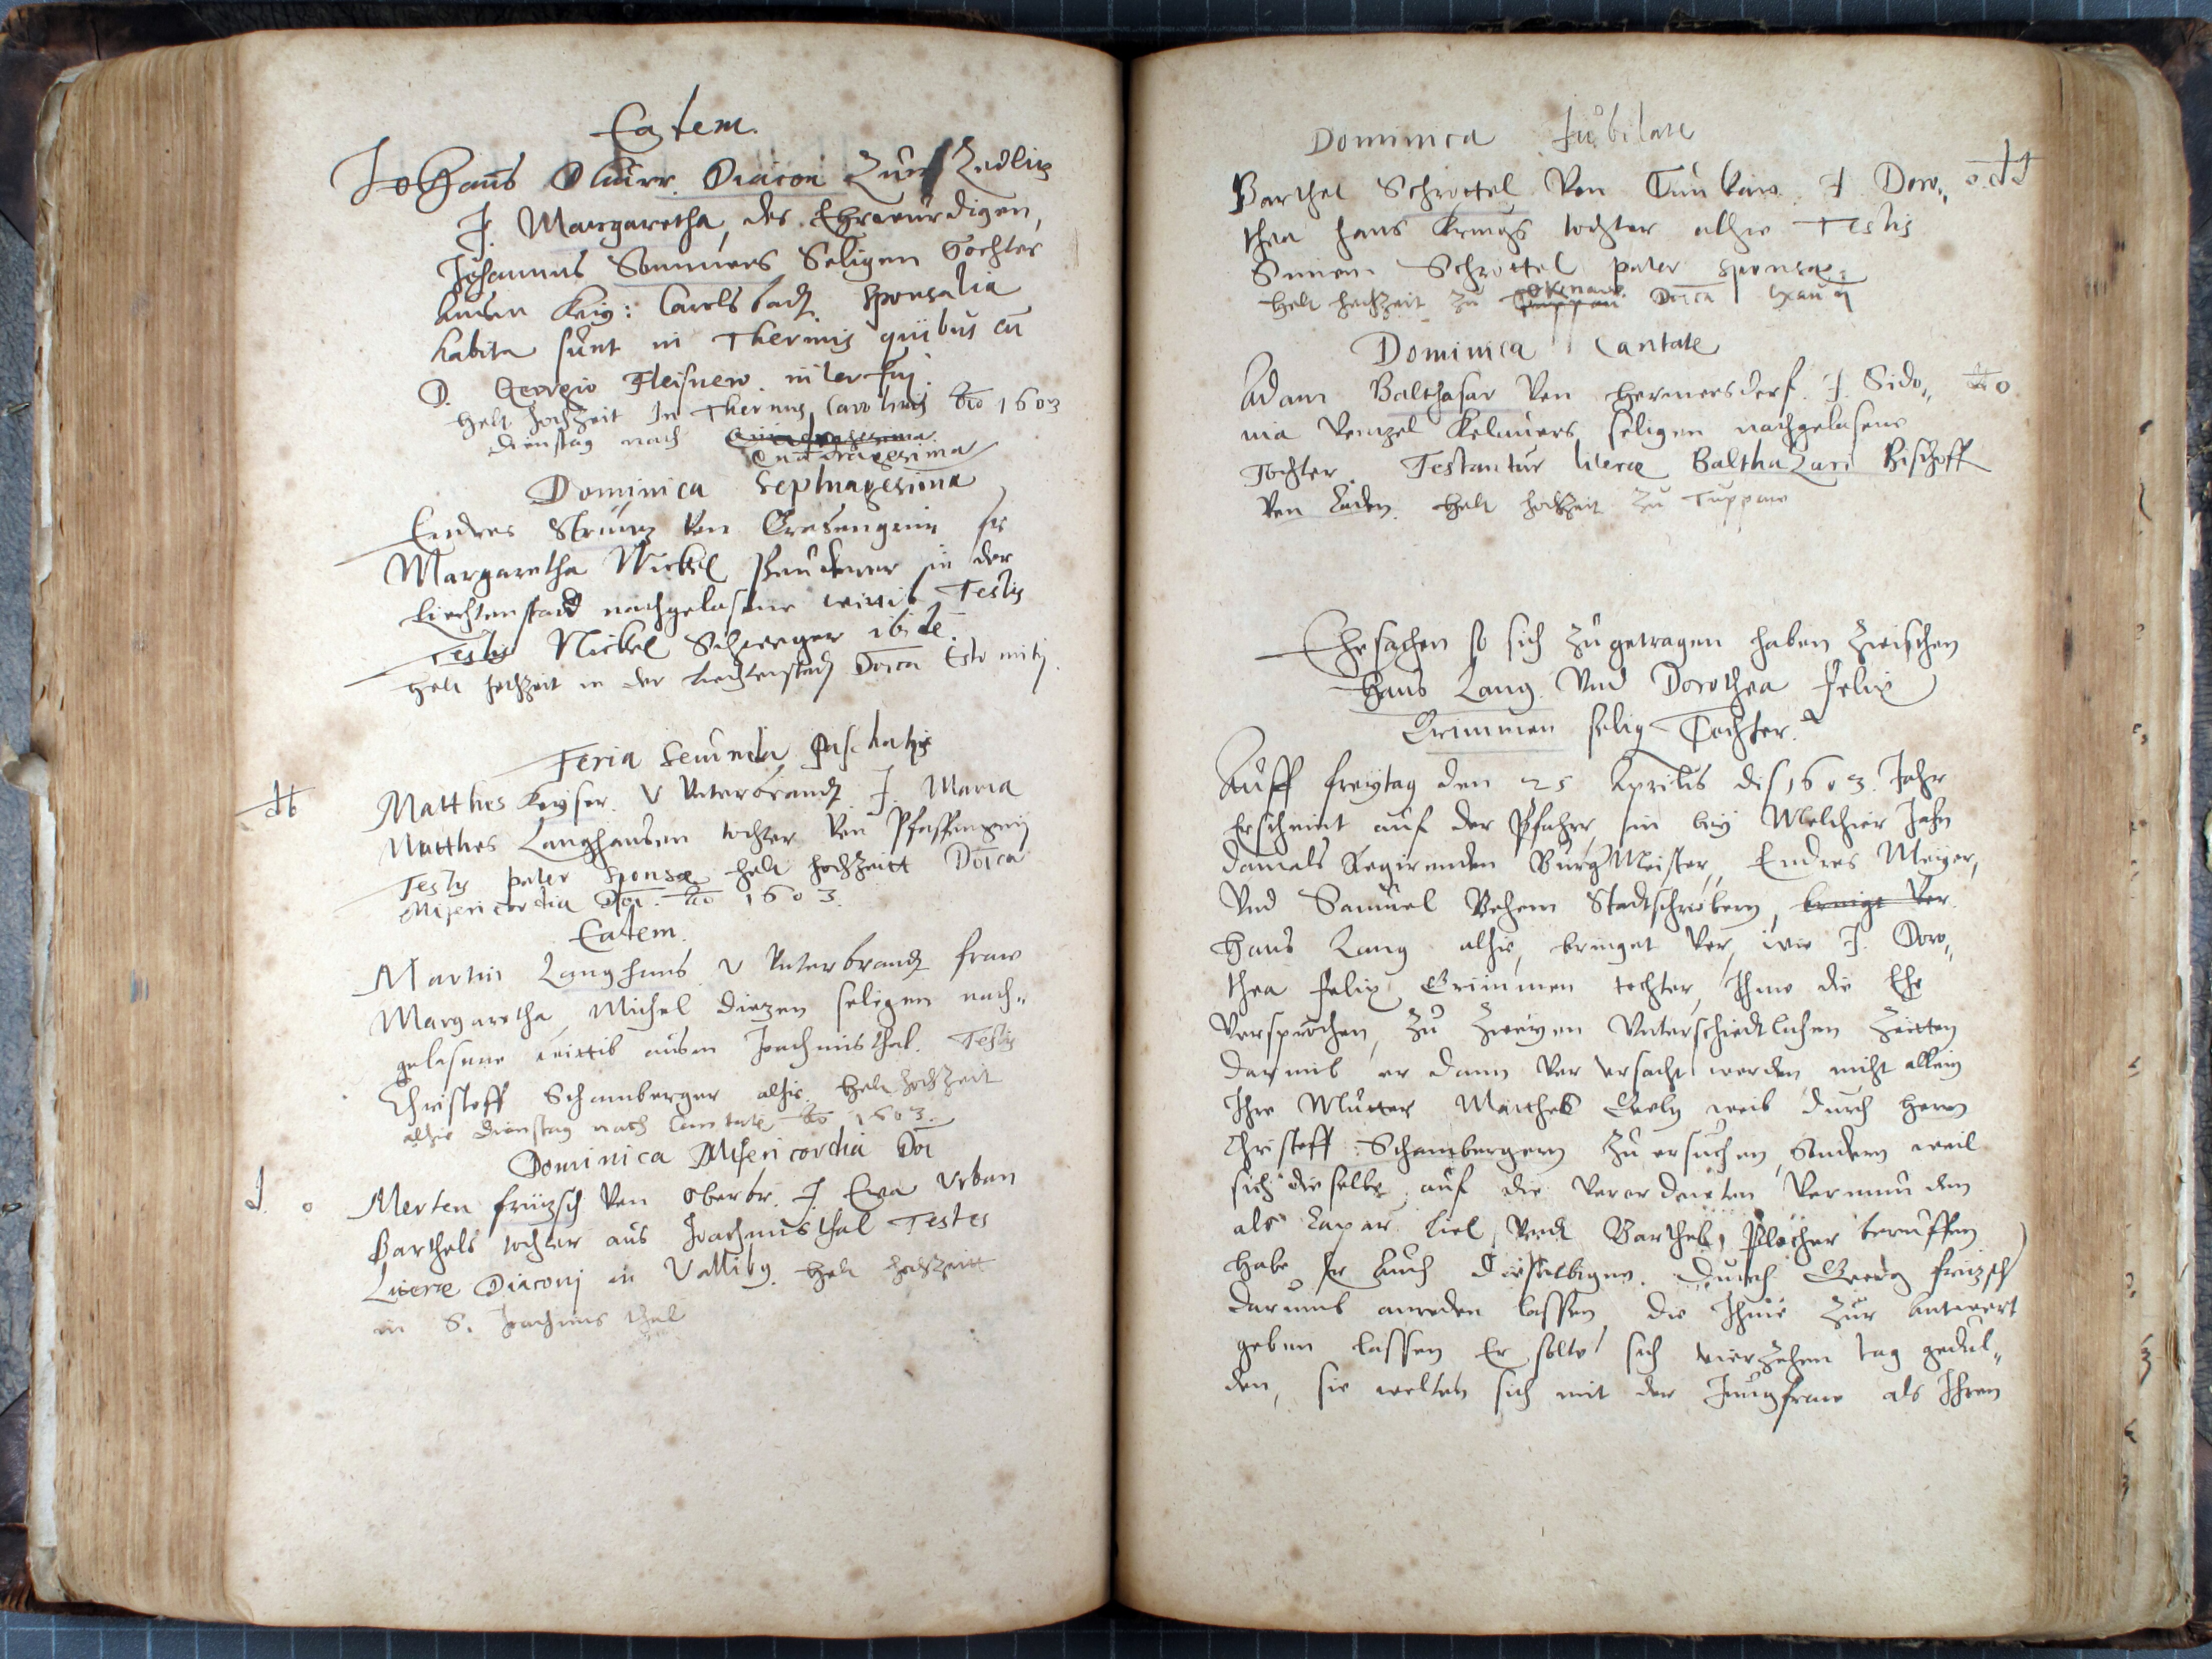 Eadem.
Johans Diacon Zum Zedlitz
J. Margaretha, des Ehrwürdigen,
Johannis Sommers Seligen Tochter
Key: Carlsbadt. Sponsalia
habita sunt in Thermis quibus cu
D. Georgio Fleisnero. interfui.
Helt hochzeit In Thermis Carolinis Ao 1603
dienstag nach Quinquagesima
Quadragesima
Dominica Septuagesima
Endres Strunz von Grasengrün fr
Margaretha Nickel in der
Liechtenstadt nachgelasene wittib Testis
Testis Nickel ibide.
Helt hochzeit in der Liechtenstadt Doica Esto mihi.
Feria secunda Paschatis
Matthes Keyser. V Unterbrandt. J. Maria
Matthes Langhansen tochter von Pfaffengrün
Testis pater sponsæ helt hochzeitt Doica
Misericordia Doi. Ao 1603.
Eadem.
Martin Langhans v Unterbrandt fraw
Margaretha, Michel Diezen seligen nach„
gelasene wittib ausm Joachimsthal. Testis
Christoff Schamberger alhie. Helt hochzeit
alhie dienstag nach Cantate Ao 1603.
Dominica Misericordia Doi
Merten fritzsch von Oberbr. J. Eva Urban
Barthels tochter aus Joachimsthal Testes
Literæ Diaconj in Vallibg. Helt hochzeitt
in S. Joachimsthal
Dominica Jubilate
Barthel Schrottel von J. Doro„
thea hans tochter alhie Testis
Simon Schrottel pater sponsæ.
Helt hochzeit zu Doica Exaudi
Dominica Cantate
Adam Balthasar von Hermersdorf. J. Sido„
nia Wenzel Kelners seligen nachgelasene
Tochter. Testantur literæ Balthazari Bischoff
von Laden. Helt hochzeit zu Tuppaw
Ehesachen so sich zugetragen haben zwischen
Hans Lang. Und Dorothea Felix
Grimmen selig Tochter.
Auff freytag den 25 Aprilis dis 1603. Jahr
Erscheint auf der Pfahrr, im bey Melchior Jahn
damals Regirenden BurgMeister, Endres Meyer,
Und Samuel Behem Stadtschreibern, bringt vor
Hans Lang alhie, bringet vor, wie J. Doro„
thea Felix Grimmen tochter, Ihme die Ehe
versprochen, zu zweyen Unterschiedtlichen Zeitten
darumb er dann verursacht worden nicht allein
Ihre Mutter Matthes weib durch herrn
Christoff Schambergern zu ersuchen, sondern weil
sich dieselbe auf die verordneten vormunden
als Caspar und Barthel Plecher beruffen
habe Er Auch dieselbigen. durch Georg fritzsch
darumb anreden lassen, die Ihme zur antwort
geben lassen Er solte sich vierzehen tag gedul„
den, sie wolten sich mit der Jungfraw als Ihren